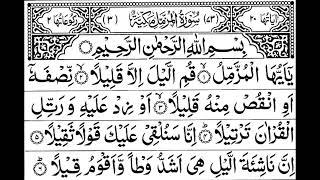 اٰيَاتُهَا ٢٠ (٧٣) سُوْرَةُ الْمُزَّمِّلِ مَكِّيَّةٌ (٣) رُكُوْعَاتُهَا ٢
بِسْمِ اللّٰهِ الرَّحْمٰنِ الرَّحِيْمِ
يٰۤاَيُّهَا الْمُزَّمِّلُ ۙ‏﴿۱﴾ قُمِ الَّيْلَ اِلَّا قَلِيْلًا ۙ‏﴿۲﴾ نِّصْفَهٗۤ
اَوِ انْقُصْ مِنْهُ قَلِيْلًا ۙ‏﴿۳﴾ اَوْ زِدْ عَلَيْهِ وَ رَتِّلِ
الْقُرْاٰنَ تَرْتِيْلًا ؕ‏﴿۴﴾ اِنَّا سَنُلْقِيْ عَلَيْكَ قَوْلًا ثَقِيْلًا ‏﴿۵﴾
اِنَّ نَاشِئَةَ الَّيْلِ هِيَ اَشَدُّ وَطْاً وَّ اَقْوَمُ قِيْلًا ؕ‏﴿۶﴾